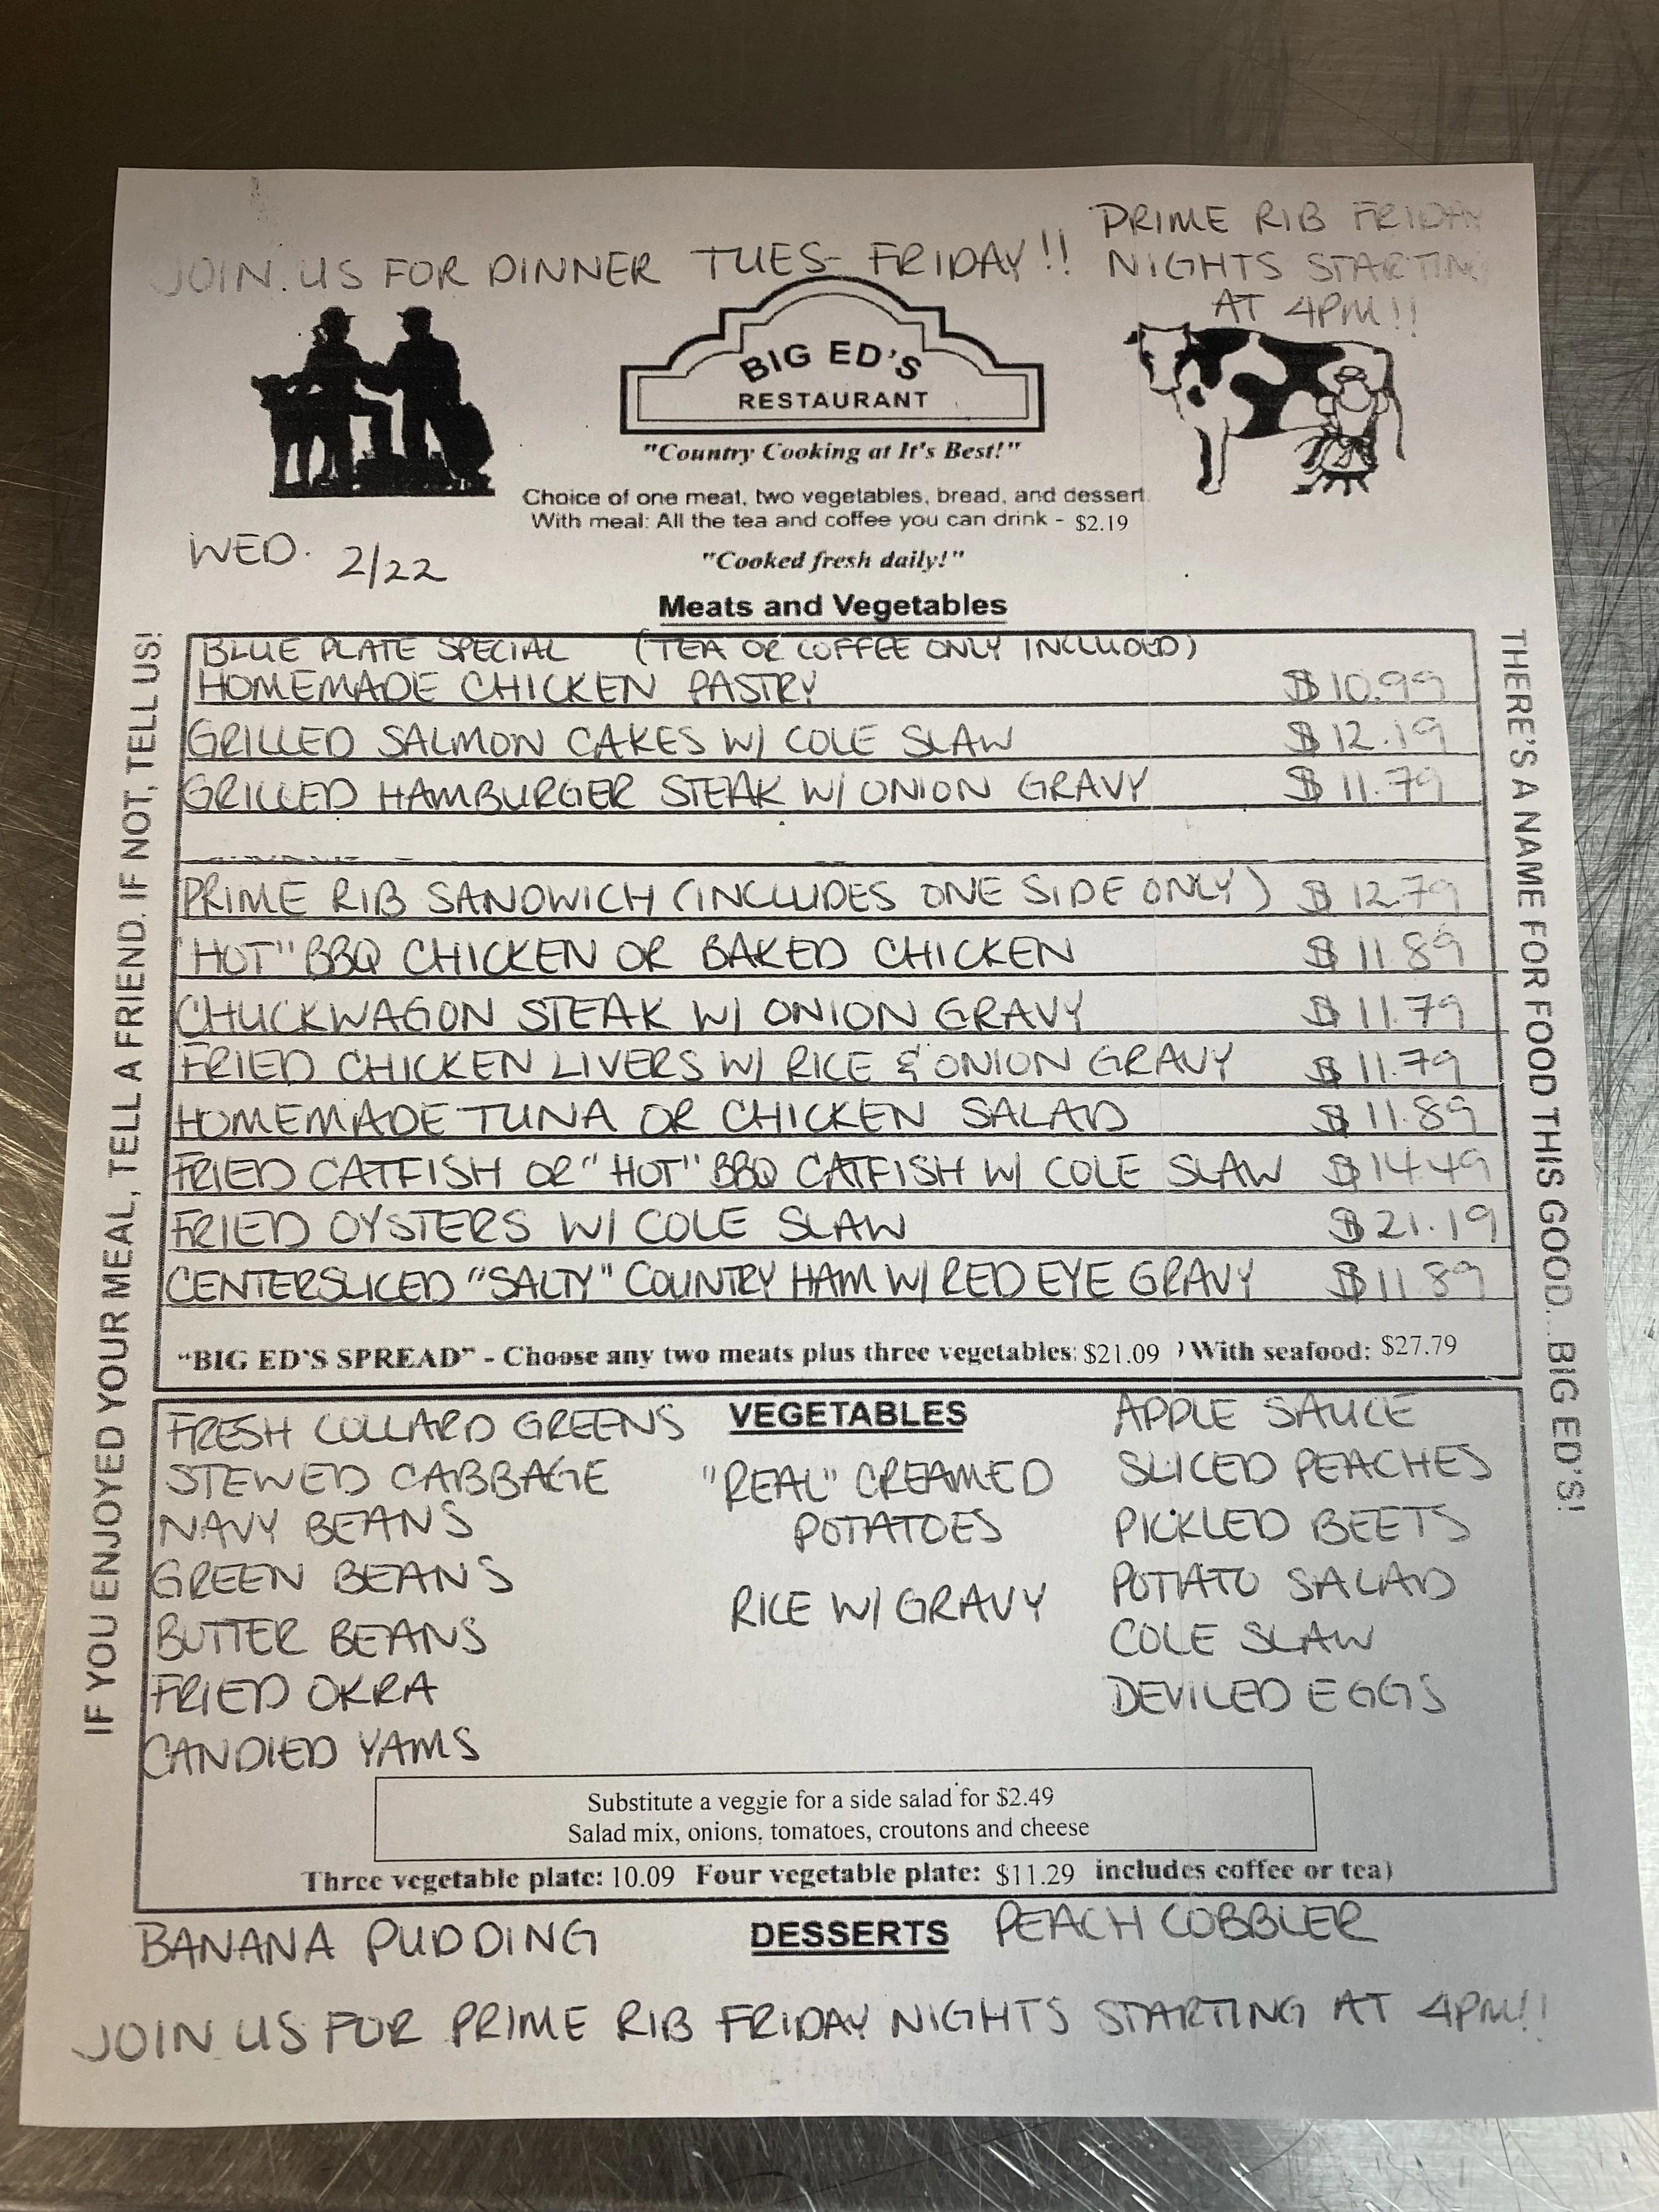 JOIN US FOR DINNER TUES- FRIDAY!!
PRIME RIB FRIDAY
NIGHTS STARTING
AT 4PM!!
BIG ED'S
RESTAURANT
"Country Cooking at It's Best!"
Choice of one meat, two vegetables, bread, and dessert.
With meal: All the tea and coffee you can drink - $2.19
WED. 2/22
"Cooked fresh daily!"
Meats and Vegetables
IF YOU ENJOYED YOUR MEAL, TELL A FRIEND. IF NOT, TELL US!
BLUE PLATE SPECIAL (TEA OR COFFEE ONLY INCLUDED)
HOMEMADE CHICKEN PASTRY $10.99
GRILLED SALMON CAKES W/ COLE SLAW $12.19
GRILLED HAMBURGER STEAK W/ ONION GRAVY $11.79
PRIME RIB SANDWICH (INCLUDES ONE SIDE ONLY) $12.79
"HOT" BBQ CHICKEN OR BAKED CHICKEN $11.89
CHUCKWAGON STEAK W/ ONION GRAVY $11.79
FRIED CHICKEN LIVERS W/ RICE & ONION GRAVY $11.79
HOMEMADE TUNA OR CHICKEN SALAD $11.89
FRIED CATFISH OR "HOT" BBQ CATFISH W/ COLE SLAW $14.49
FRIED OYSTERS W/ COLE SLAW $21.19
CENTERSLICED "SALTY" COUNTRY HAM W/ RED EYE GRAVY $11.89
"BIG ED'S SPREAD" - Choose any two meats plus three vegetables: $21.09 ) With seafood: $27.79
THERE'S A NAME FOR FOOD THIS GOOD...BIG ED'S!
VEGETABLES
FRESH COLLARD GREENS
STEWED CABBAGE
NAVY BEANS
GREEN BEANS
BUTTER BEANS
FRIED OKRA
CANDIED YAMS
"REAL" CREAMED
POTATOES
RICE W/ GRAVY
APPLE SAUCE
SLICED PEACHES
PICKLED BEETS
POTATO SALAD
COLE SLAW
DEVILED EGGS
Substitute a veggie for a side salad for $2.49
Salad mix, onions, tomatoes, croutons and cheese
Three vegetable plate: 10.09 Four vegetable plate: $11.29 includes coffee or tea)
BANANA PUDDING DESSERTS PEACH COBBLER
JOIN US FOR PRIME RIB FRIDAY NIGHTS STARTING AT 4PM!!